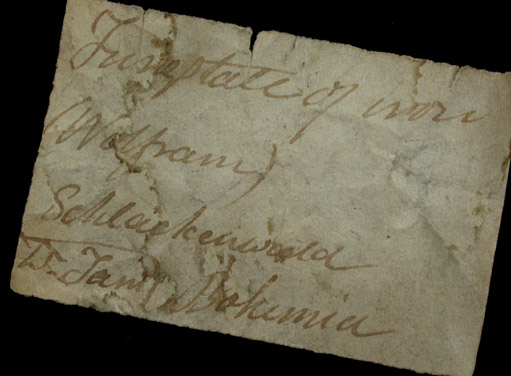 Tungstate of iron
(Wolfram)
Schlackenwald
Bohemia